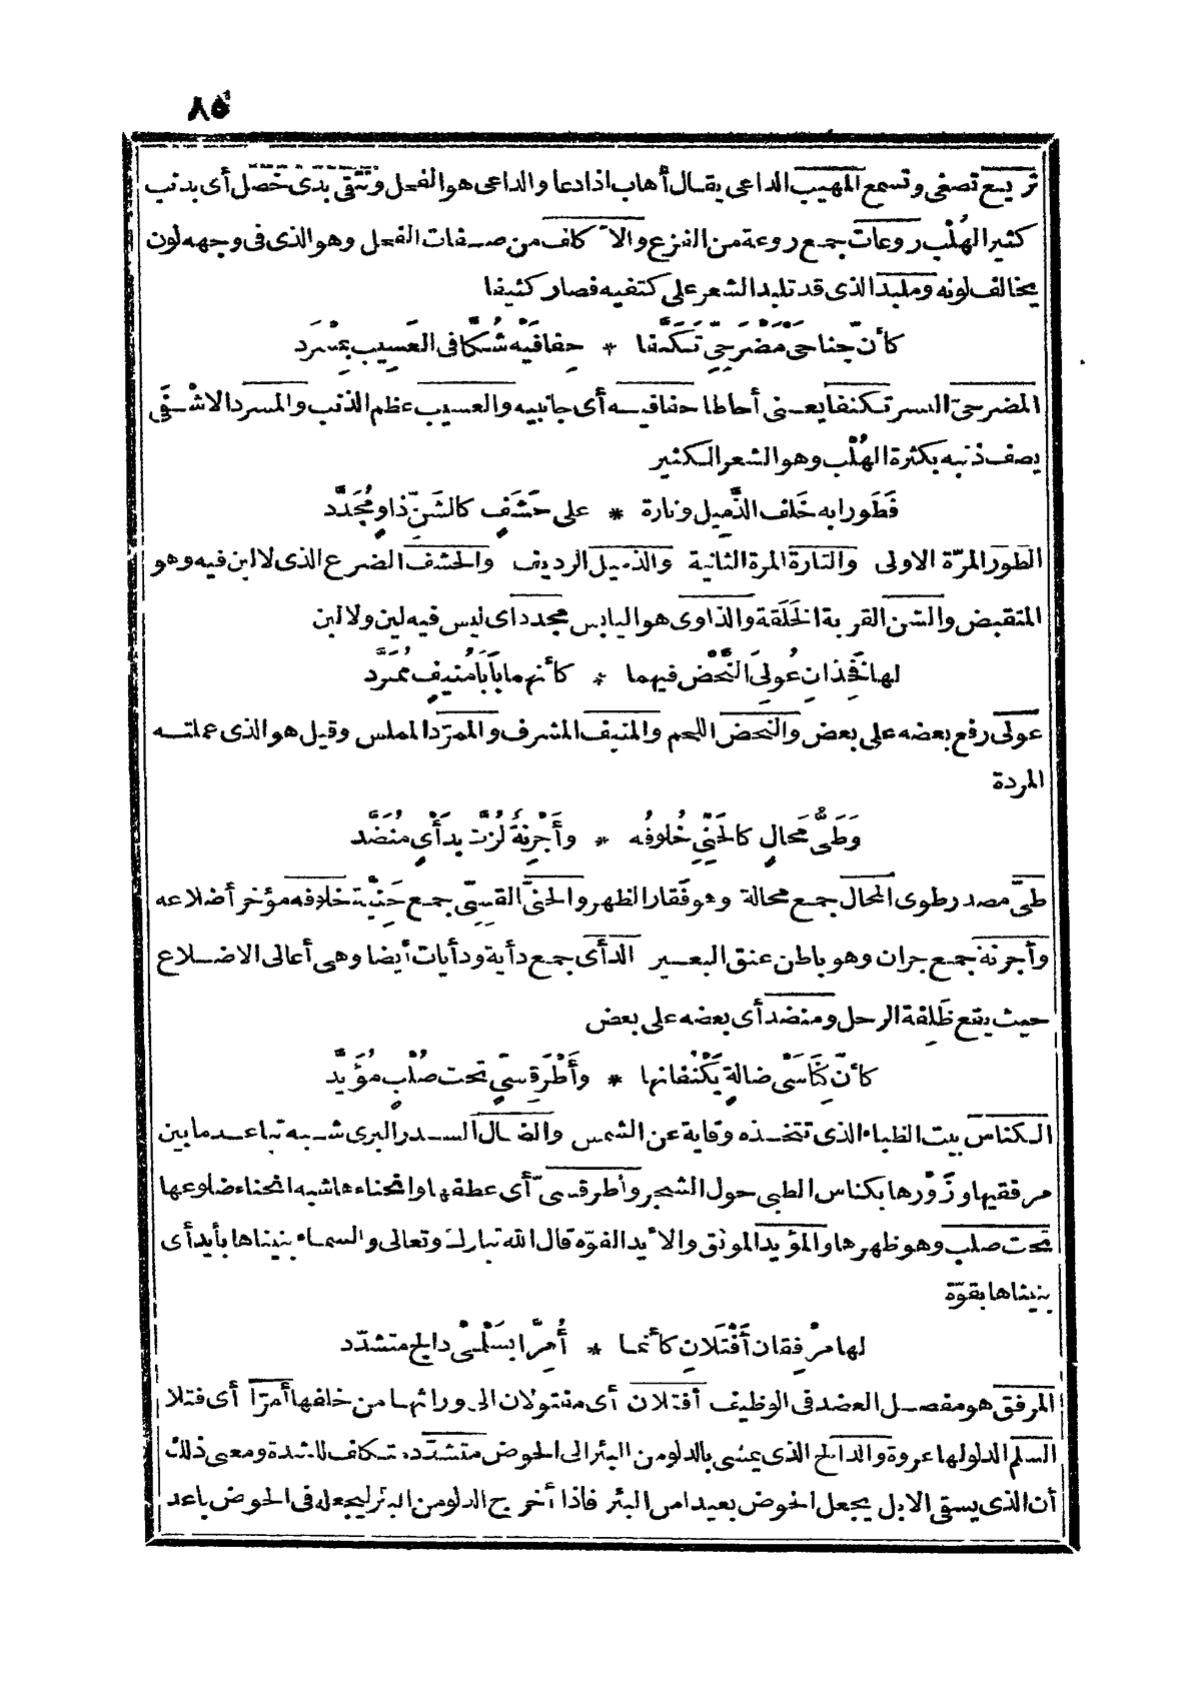 ٨٥
تريع تصغى وتسمع المهيب الداعى يقال أهاب اذا دعا والداعى هو الفحل وتتقى بذى خصل أى بذنب
كثير الهُلْب روعات جمع روعة من الفزع والأكلف من صفات الفحل وهو الذى فى وجهه لون
يخالف لونه وملبد الذى قد تلبد الشعر على كتفيه فصار كثيفا
كأنّ جناحَىْ مَضْرَحِىّ تَكَنَّفا * حِفافَيْه شُكّا فى العَسِيب بِمْسَرد
المضرحىّ النسر تكنفا يعنى أحاطا حفافيه أى جانبيه والعسيب عظم الذنب والمسرد الاشفَى
يصف ذنبه بكثرة الهُلْب وهو الشعر الكثير
فَطَورا به خَلف الزَّمِيل وتارة * على حَشَفٍ كالشَنّ ذاوٍ مُجَدَّد
الطور المرّة الاولى والتارة المرة الثانية والزميل الرديف والحشف الضرع الذى لا لبن فيه وهو
المتقبض والشن القربة الخَلَقة والذاوى هو اليابس مجدد اى ليس فيه لين ولا لبن
لها فَخِذانِ عُولِىَ النَّحْض فيهما * كأنهما بَابَا مُنيفٍ مُمَرَّد
عولى رفع بعضه على بعض والنحض اللحم والمنيف المشرف والممرّد المملس وقيل هو الذى عملته
المردة
وَطَىُّ مَحالٍ كالحَنِىِّ خُلوفُه * وأَجْرِنةٌ لُزَّتْ بدَأْىٍ مُنَضَّد
طىّ مصدر طوى المحال جمع محالة وهو فَقار الظهر والحنىّ القسىّ جمع حَنِيّة خلافه مؤخر أضلاعه
وأجرنة جمع جران وهو باطن عنق البعير الدأى جمع دأية ودأيات أيضا وهى أعالى الاضلاع
حيث يقع ظَلِفة الرحل ومنضد أى بعضه على بعض
كأنّ كِناسَىْ ضالةٍ يَكْنُفانها * وأَطْرَ قِسىّ تحت صُلْبٍ مُؤَيَّد
الكناس بيت الظباء الذى تتخذه وقاية عن الشمس والضال السدر البرى شبه تباعد ما بين
مرفقيها وزَوْرها بكناس الظبى حول الشجر وأطر قسىّ أى عطفها وانحناءها شبه انحناء ضلوعها
تحت صلب وهو ظهرها والمؤيد الموثق والأيد القوّة قال الله تبارك وتعالى والسماء بنيناها بأيد أى
بنيناها بقوّة
لها مرْفِقان أَفْتَلانِ كأنما * أُمِرّا بسَلْمَىْ دالج متشدّد
المرفق هو مفصل العضد فى الوظيف أفتلان أى مفتولان الى ورائهما من خلفها أمرّا أى فتلا
السلم الدلو لها عروة والدالج الذى يمشى بالدلو من البئر الى الحوض متشدّد متكلف للشدة ومعنى ذلك
أن الذى يسقى الابل يجعل الحوض بعيدا من البئر فاذا أخرج الدلو من البئر ليجعله فى الحوض باعد